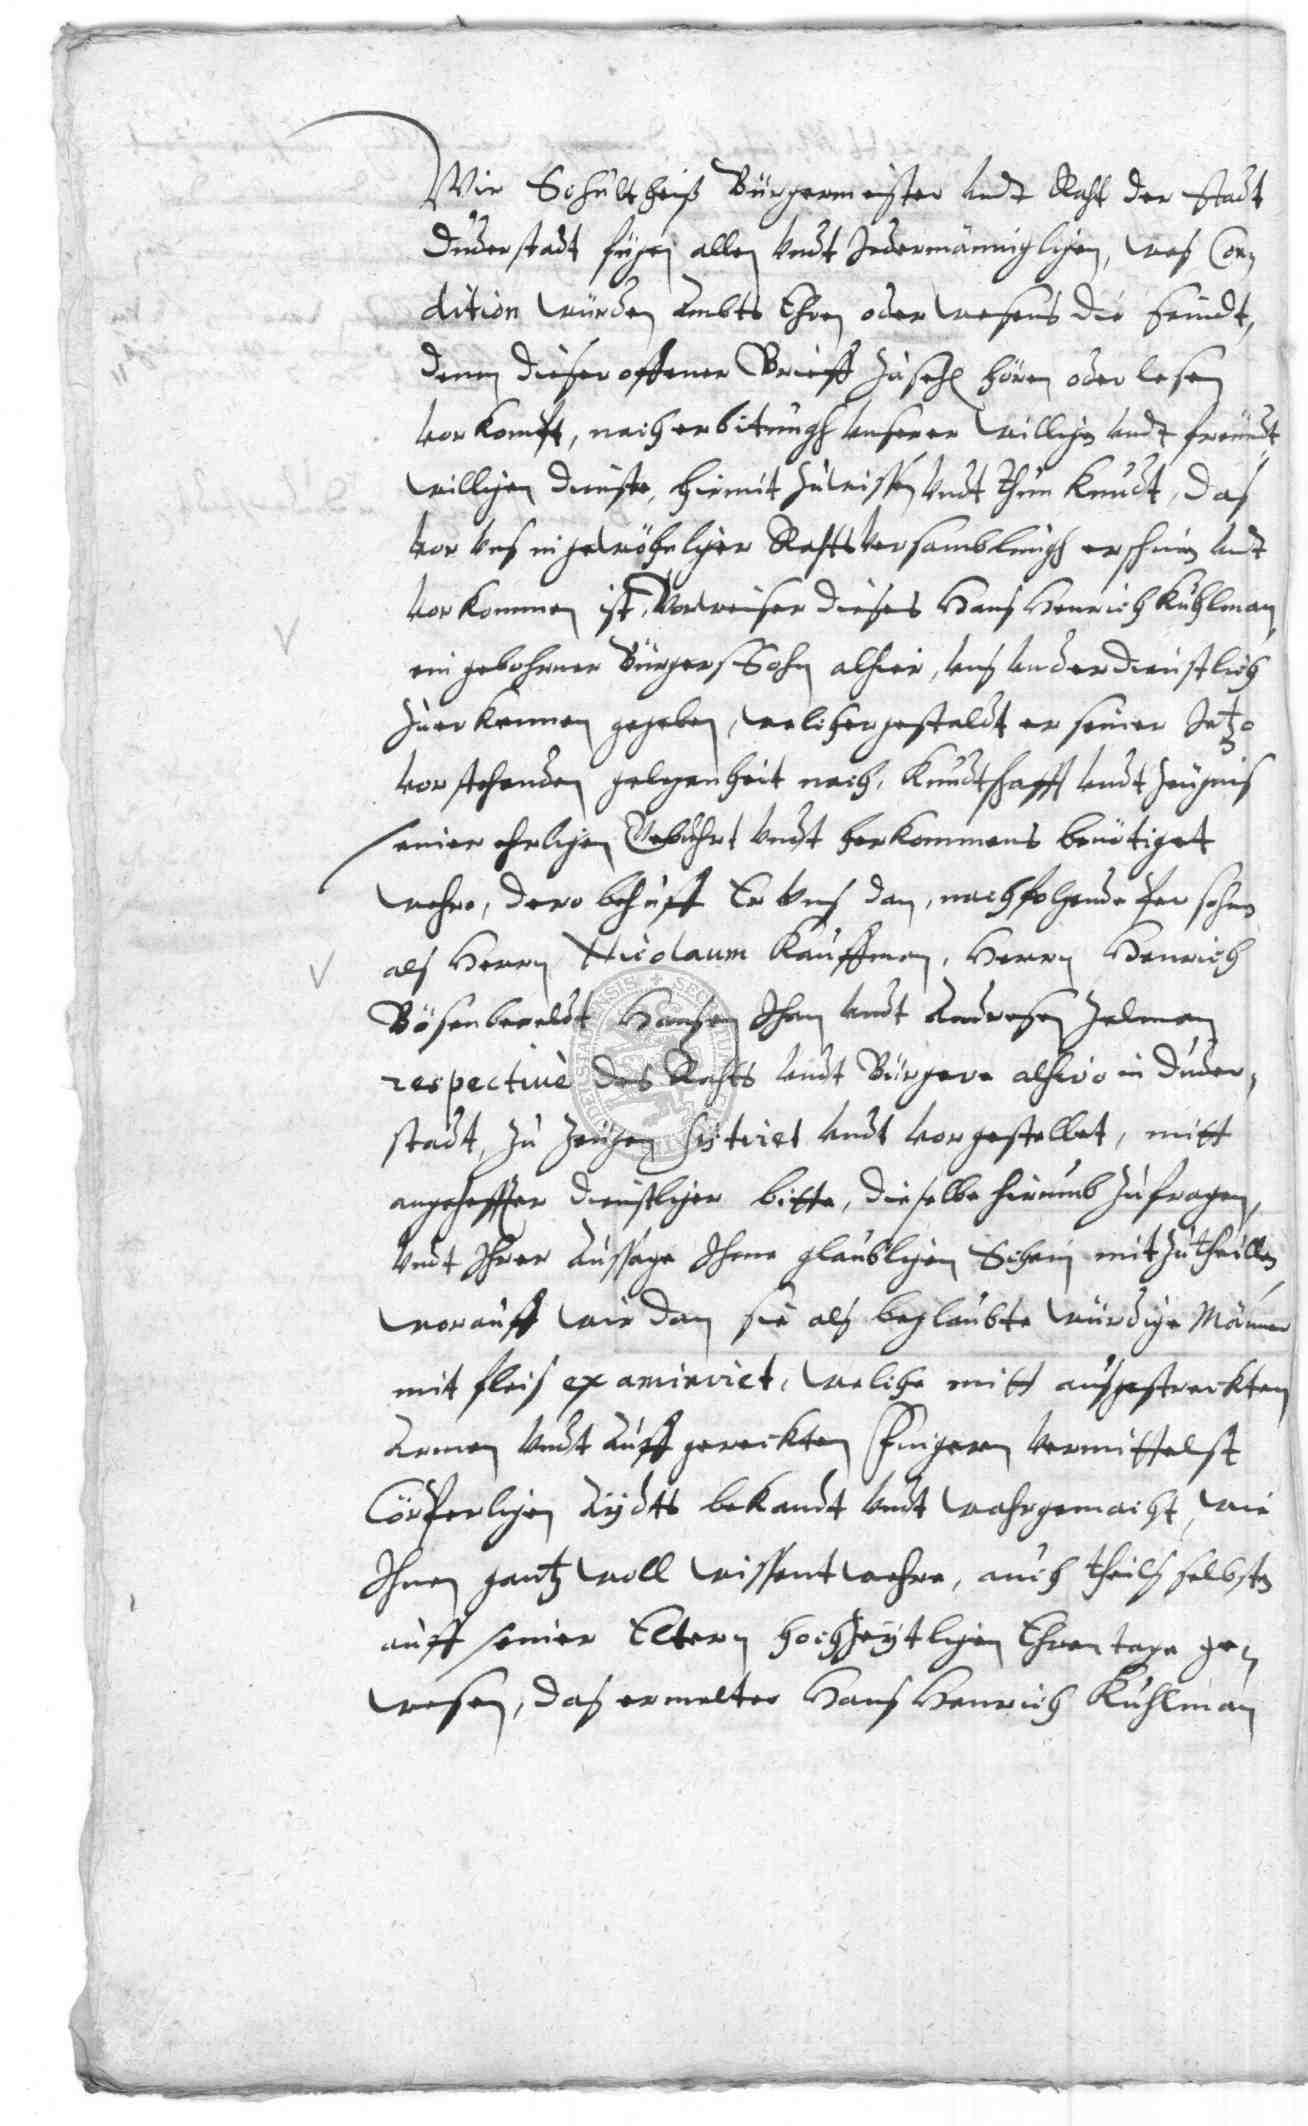 Wir Schultheiß Bürgermeister undt Raht der Stadt
Duderstadt fügen allen undt Jedermänniglichen, was Con-
dition würden Ambts Ehren oder wesens die seindt,
denen dieser offener Brieff zu sehen hören oder lesen
vorkompt, nach erbitungh unserer willigen undt freundt-
willigen dienste, hirmit zu wissen undt thun kundt, das
vor uns in gewöhnlicher Rahtsversamblungh erschinen undt
vorkommen ist, Vorweiser dieses Hans Henrich Kuhlman
ein gebohrner Bürgers Sohn alhier, uns underdienstlich
zu erkennen gegeben, welichergestaldt er seiner Jetzo
vorstehenden gelegenheit nach, kundtschafft undt zeugnis
seiner ehrlichen Gebuhrt undt herkommens benötiget
wehre, dero behueff Er uns dan, nachfolgende Persohnen
als Herrn Nicolaum Kauffman, Herrn Henrich
Bösenbereldt Hansen Ihan undt Andresen Helman
respectivè des Rahts undt Bürgere alhiro in Duder-
stadt, zu Zeugen sistiret undt vorgestellet, mitt
angeheffter dienstlicher bitte, dieselbe hirumb zufragen,
undt Ihrer Aussage Ihme glaublichen Schein mitzutheillen
worauff wir dan sie als beglaubte würdige Männer
mit fleis examiniret, weliche mitt ausgestreckten
Armen undt auffgereckten Fingeren vermittelst
Cörperlichen Aÿdts bekandt undt wahrgemacht, wie
Ihnen gantz woll wissent wehre, auch theils selbsten
auff seiner Eltern hochzeÿtlichen Ehrentage ge-
wesen, das ermelter Hans Henrich Kuhlman